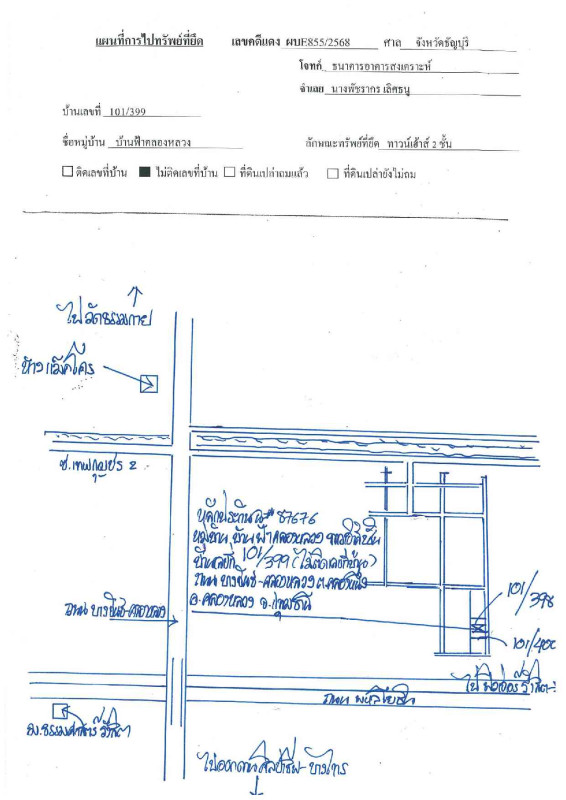 แผนที่การไปทรัพย์ที่ยึด เลขคดีแดง ผบE855/2568 ศาล จังหวัดธัญบุรี
โจทก์ ธนาคารอาคารสงเคราะห์
จำเลย นางพัชราภร เลิศธนู
บ้านเลขที่ 101/399
ชื่อหมู่บ้าน บ้านฟ้าคลองหลวง ลักษณะทรัพย์ที่ยึด ทาวน์เฮ้าส์ 2 ชั้น
ติดเลขที่บ้าน ไม่ติดเลขที่บ้าน ที่ดินเปล่าถมแล้ว ที่ดินเปล่ายังไม่ถม
ไปวัดธรรมกาย
ห้างแม็คโคร
ซ.เทพกุญชร 2
87676
หมู่บ้าน บ้านฟ้าคลองหลวง
บ้านเลขที่ 101/399 (ไม่ติดเลขที่บ้าน)
ถนน บางขันธ์-คลองหลวง ต.คลองหนึ่ง
อ.คลองหลวง จ.ปทุมธานี
101/398
ถนน บางขันธ์-คลองหลวง
101/400
ถนน พหลโยธิน
รพ.ธรรมศาสตร์ รังสิต